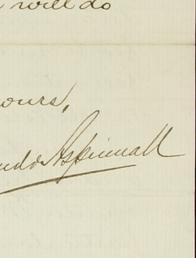 will do
ours,
Aspinwall